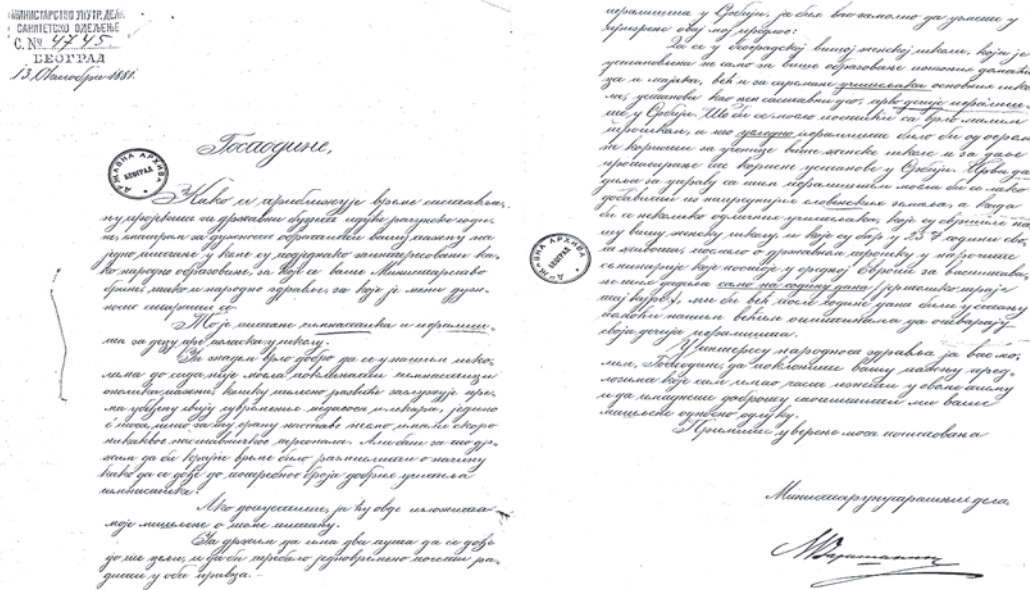 МИНИСТАРСТВО УНУТР. ДЕЛА
САНИТЕТСКО ОДЕЉЕЊЕ
С. № 4745
БЕОГРАД
13. Октобра 1881.
Господине,
ДРЖАВНА АРХИВА
БЕОГРАД
Како се приближује време састављању
пројекта за државни буџет идуће рачунске године,
сматрам за дужност обратити вашу пажњу на
једно питање у коме су подједнако заинтересовани како
народно образовање, за које се ваше Министарство
брине, тако и народно здравље, за које је мени дужност
старати се.
То је питање гимнастика и
за децу пре поласка у школу.
Ја знадем врло добро да се у нашим школама
до сада није могла поклањати гимнастици
онолика пажња, колику телесно развиће заслужује према
убеђењу свију савремених педагога и лекара, једино
с тога, што за ту грану наставе нисмо имали скоро
никаквог наставничког персонала. Али баш за то држим
да би крајње време било размислити о начину
како да се дође до потребног броја добрих учитеља
гимнастике.
Ако допустите, ја ћу овде изложити
моје мишљење о томе питању.
Ја држим да има два пута да се дође
до те цељи, и да би требало једновремено почети радити
у оба правца.
у Србији, ја бих вас замолио да узмете у
овај мој предлог:
Да се у београдској вишој женској школи, која је
установљена не само за више образовање
и мајака, већ и за спремање учитељака основних школа,
установи као њен саставни део, прво дечије
у Србији. То би се могло постићи са врло малим
трошком, а што угледно било би од
користи за ученице више женске школе и за даље
простирање те корисне установе у Србији. Прва
за управу са тим могла би се лако
добавити из напреднијих словенских земаља, а када
би се неколико одличних учитељака, које су свршиле нашу
вишу женску школу, и које су бар у 25ој години свога
живота, послало о државном трошку у нарочите
семинарије које постоје у средњој Европи за
само на годину дана / јер толико траје
тај курс /, ми би већ после године дана били у стању
помоћи нашим већим општинама да отварају
своја дечија
У интересу народнога здравља ја вас молим,
Господине, да поклоните вашу пажњу предлозима
које сам имао част изнети у овоме акту
и да изволите доброту саопштити ми ваше
мишљење односно одлуку.
Примите уверење мога поштовања
ДРЖАВНА АРХИВА
БЕОГРАД
Министар унутрашњих дела,